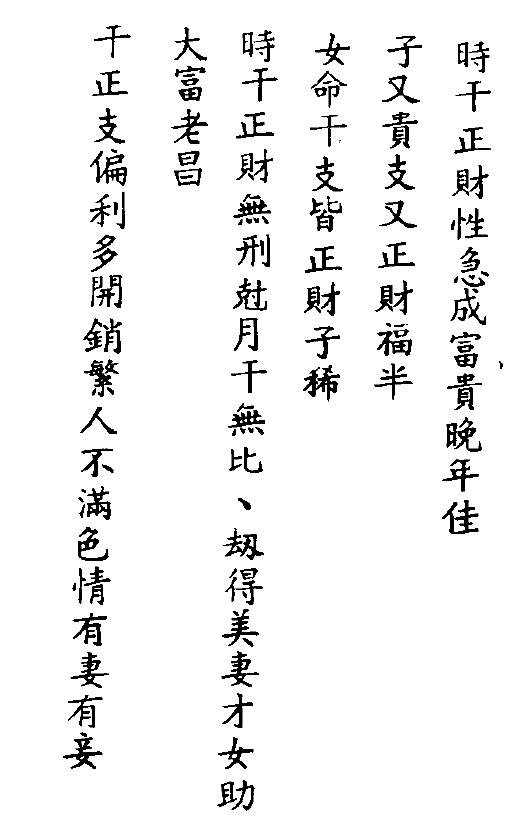 時干正財性急成富貴晚年佳
子又貴支又正財福半
女命干支皆正財子稀
時干正財無刑尅月干無比、刼得美妻才女助
大富老昌
干正支偏利多開銷繁人不滿色情有妻有妾